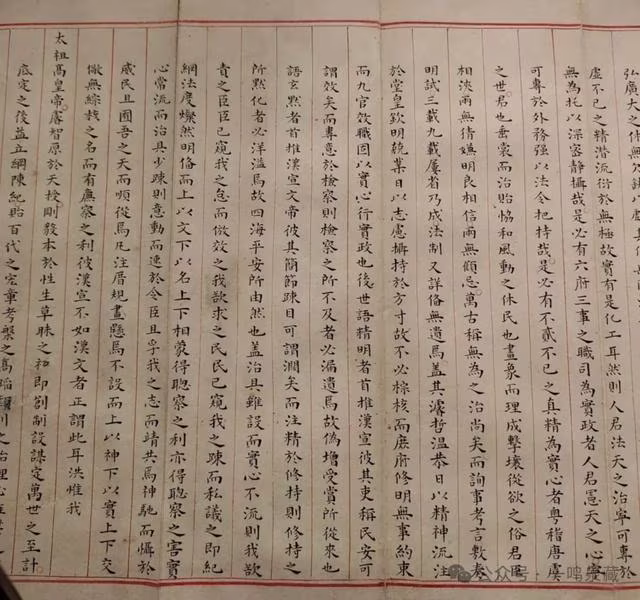 弘廣大之体無欠缺以其
虛不已之精潜流衍於無極故實有是化工耳然則人君法天之治寧可專於
無為托以深密静攝哉是必有六府三事之職司為實政者人君憲天之心寧
可專於外務强以法令把持哉是必有不貳不已之真精為實心者粤稽唐虞
之世君也垂裳而治貽協和風動之休民也畫象而理成擊壤從欲之俗君臣
相浹兩無猜嫌明良相信兩無顧忌萬古稱無為之治尚矣而詢事考言敷奏
明試三載九載屢省乃成法制又詳俻無遺焉蓋其濬哲温恭日以精神流注
於堂皇欽明兢業日以志慮攝持於方寸故不必綜核而庶府修明無事約束
而九官效職固以實心行實政也後世語精明者首推漢宣彼其吏稱民安可
謂效矣而專意於檢察則檢察之所不及者必漏遺焉故偽增受賞所從來也
語玄黙者首推漢文帝彼其簡節疎目可謂濶矣而注精於修持則修持之
所黙化者必洋溢焉故四海平安所由然也蓋治具雖設而實心不流則我欲
責之臣臣已窺我之怠而倣效之我欲求之民民已窺我之疎而私議之即紀
綱法度燦然明俻而上以文下以名上下相蒙得聰察之利亦得聰察之害實
心常流而治具少疎則意動而速於令臣且孚我之志而靖共焉神馳而慑於
威民且囿吾之天而順從焉凡注厝規畫懸焉不設而上以神下以實上下交
儆無綜核之名而有廡察之利彼漢宣不如漢文者正謂此耳洪惟我
太祖高皇帝睿智原於天授剛毅本於性生草昧之初即創制設謀定萬世之至計
底定之後益立綱陳紀貽百代之宏章考槃之
公众号·一鸣泉藏